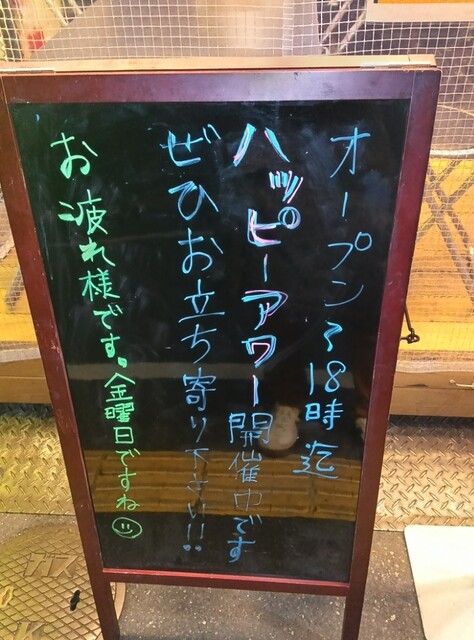 オープン〜18時迄
ハッピーアワー開催中です
ぜひお立ち寄り下さい!!
お疲れ様です。金曜日ですね
ガス